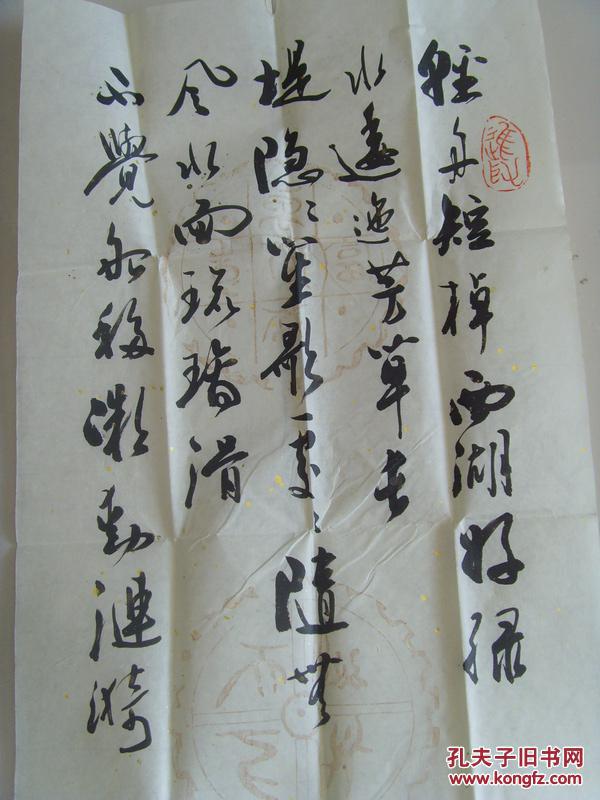 轻舟短棹西湖好绿
水逶迤芳草长
堤隐〻笙歌处〻随无
风水面琉璃滑
不觉船移微动涟漪
孔夫子旧书网
www.kongfz.com